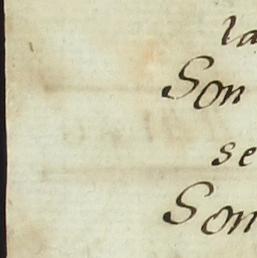 la
Son
se
Son